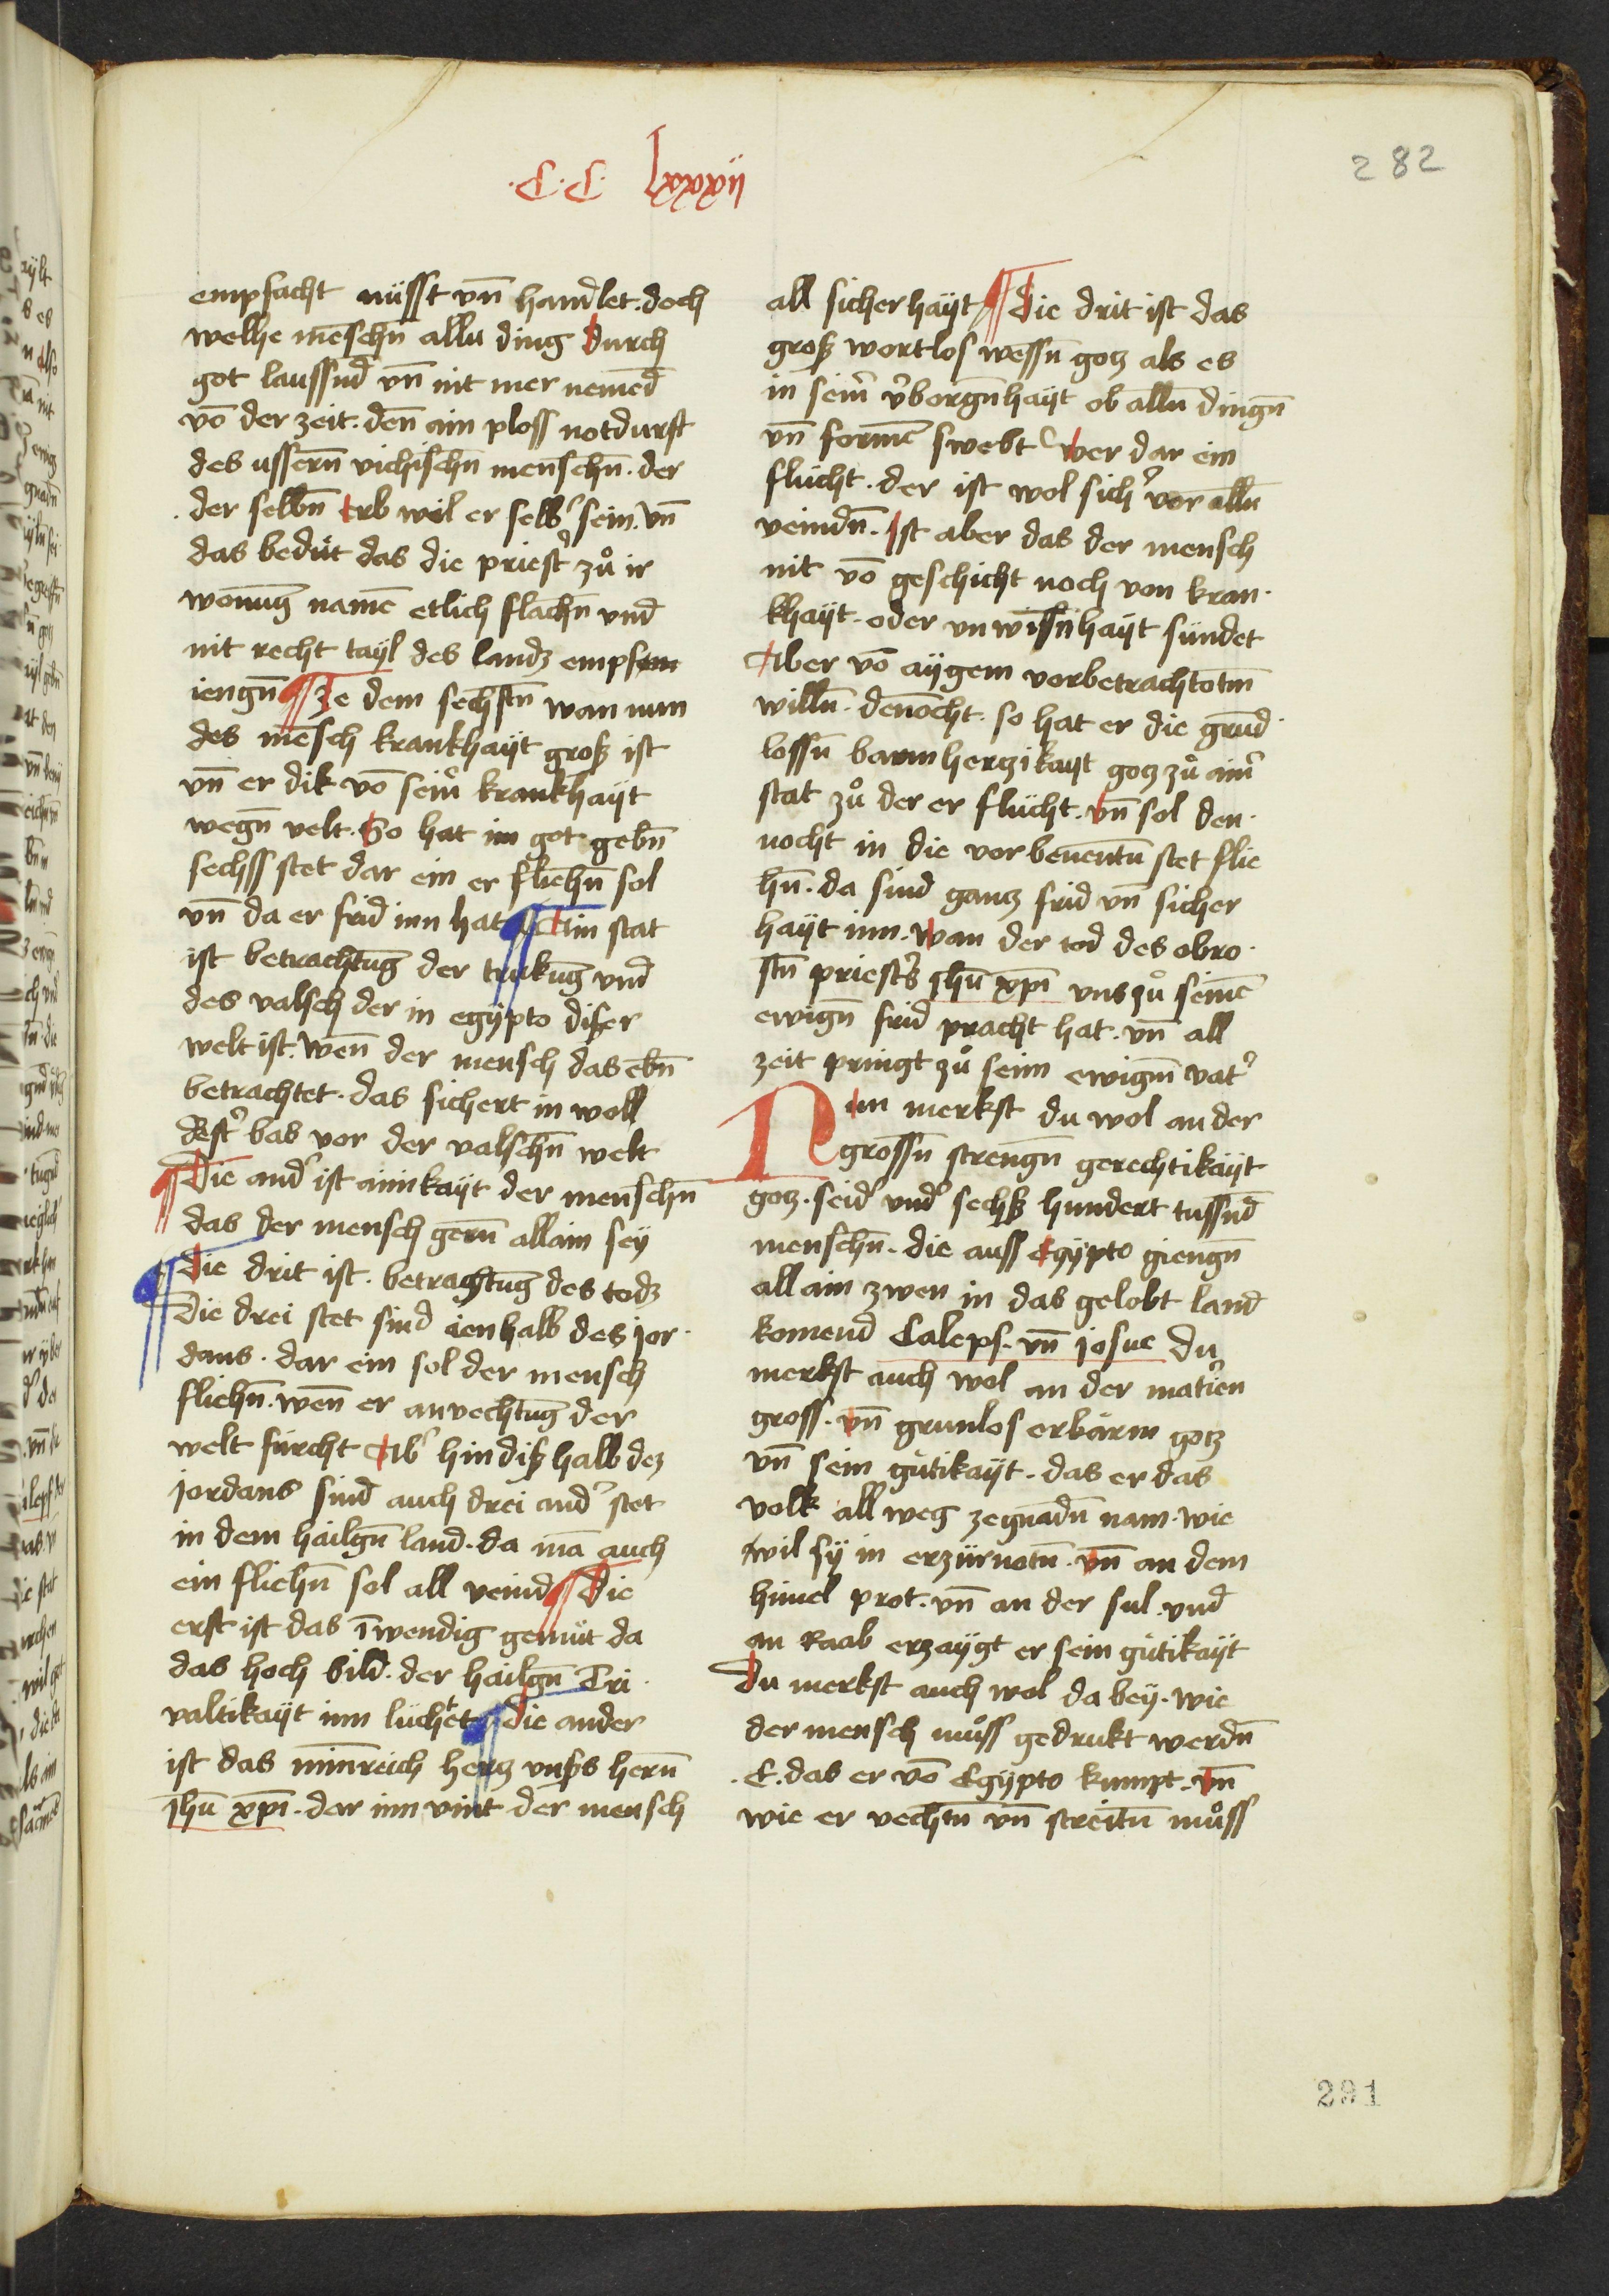 ·C·C· lxxxij
282
empfacht nüsst vn̄ handlet. doch
welhe menschn̄ allu ding durch
got laussnd̄ vn̄ nit mer nemēd
vō der zeit. den̄ ain ploss notdurft
des ussern̄ vichischn̄ menschn̄. der
der selbn̄ erb wil er selb' sein. vn̄
das bedüt das die priest' zů ir
wonung namē etlich flachn̄ vnd
nit recht tayl des landz empfem
iengn̄ ¶ Ze dem sechstn̄ wan nun
des mensch krankhayt groß ist
vn̄ er dik vō sein' krankhayt
wegn̄ velt. So hat im got gebn̄
sechss stet dar ein er fliehn̄ sol
vn̄ da er frid inn hat ¶ Ain stat
ist betrachtūg der trukūg vnd
des valsch der in egypto diser
welt ist. wen̄ der mensch das ebn̄
betrachtet. das sichert in woll
dest' bas vor der valschn̄ welt
¶ Die and' ist ainikayt der menschn̄
das der mensch gern̄ allain sey
¶ Die drit ist. betrachtūg des todz
Die drei stet sind ienhalb des jor·
dans. dar ein sol der mensch
fliehn̄. wen̄ er anvechtūg der
welt fürcht Ab' hin diß halb dez
jordans sind auch drei and' stet
in dem hailgn̄ land. da mā auch
ein fliehn̄ sol all veind ¶ Die
erst ist das īwendig gemüt da
das hoch bild. der hailgn̄ Tri·
valtikayt inn lüchtet ¶ Die ander
ist das min̄reich hertz vnsers hern̄
jhū xp̄i. dar inn vint der mensch
all sicherhayt ¶ Die drit ist das
groß wortlos wessn̄ gotz als es
in sein' v'borgn̄hayt ob alln̄ dingn̄
vn̄ formē swebt Wer dar ein
flücht. der ist wol sich' vor alln̄
veindn̄. Ist aber das der mensch
nit vō geschicht noch von kran·
khayt. oder vnwissn̄hayt sündet
Aber vō aygem vorbetrachtotm̄
willn̄. den̄ocht. so hat er die grund·
lossn̄ barmhertzikayt gotz zů ain'
stat zů der er flücht. vn̄ sol den·
nocht in die vor benentn̄ stet flie
hn̄. da sind gantz frid vn̄ sicher
hayt inn. wan der tod des obro·
stn̄ priest's jhū xp̄i vns zů seinē
ewign̄ frid pracht hat. vn̄ all
zeit pringt zů seim ewigm̄ vat'
Nun merkst du wol an der
grossn̄ strengn̄ gerechtikayt
gotz. seid' vnd' sechß hundert tussnd̄
menschn̄. die auss egypto giengn̄
allain zwen in das gelobt land
komend Caleps. vn̄ josue Du
merkst auch wol an der mat'ien
gross. vn̄ grunlos erbärm gotz
vn̄ sein gütikayt. das er das
volk all weg ze gnadn̄ nam. wie
wil sy in erzürnotn̄. vn̄ an dem
himel prot. vn̄ an der sul. vnd
an Raab erzaygt er sein gütikayt
Du merkst auch wol da bey. wie
der mensch můss gedrukt werdn̄
·E. das er vō Egypto kumpt. vn̄
wie er vechtn̄ vn̄ streitn̄ můss
291